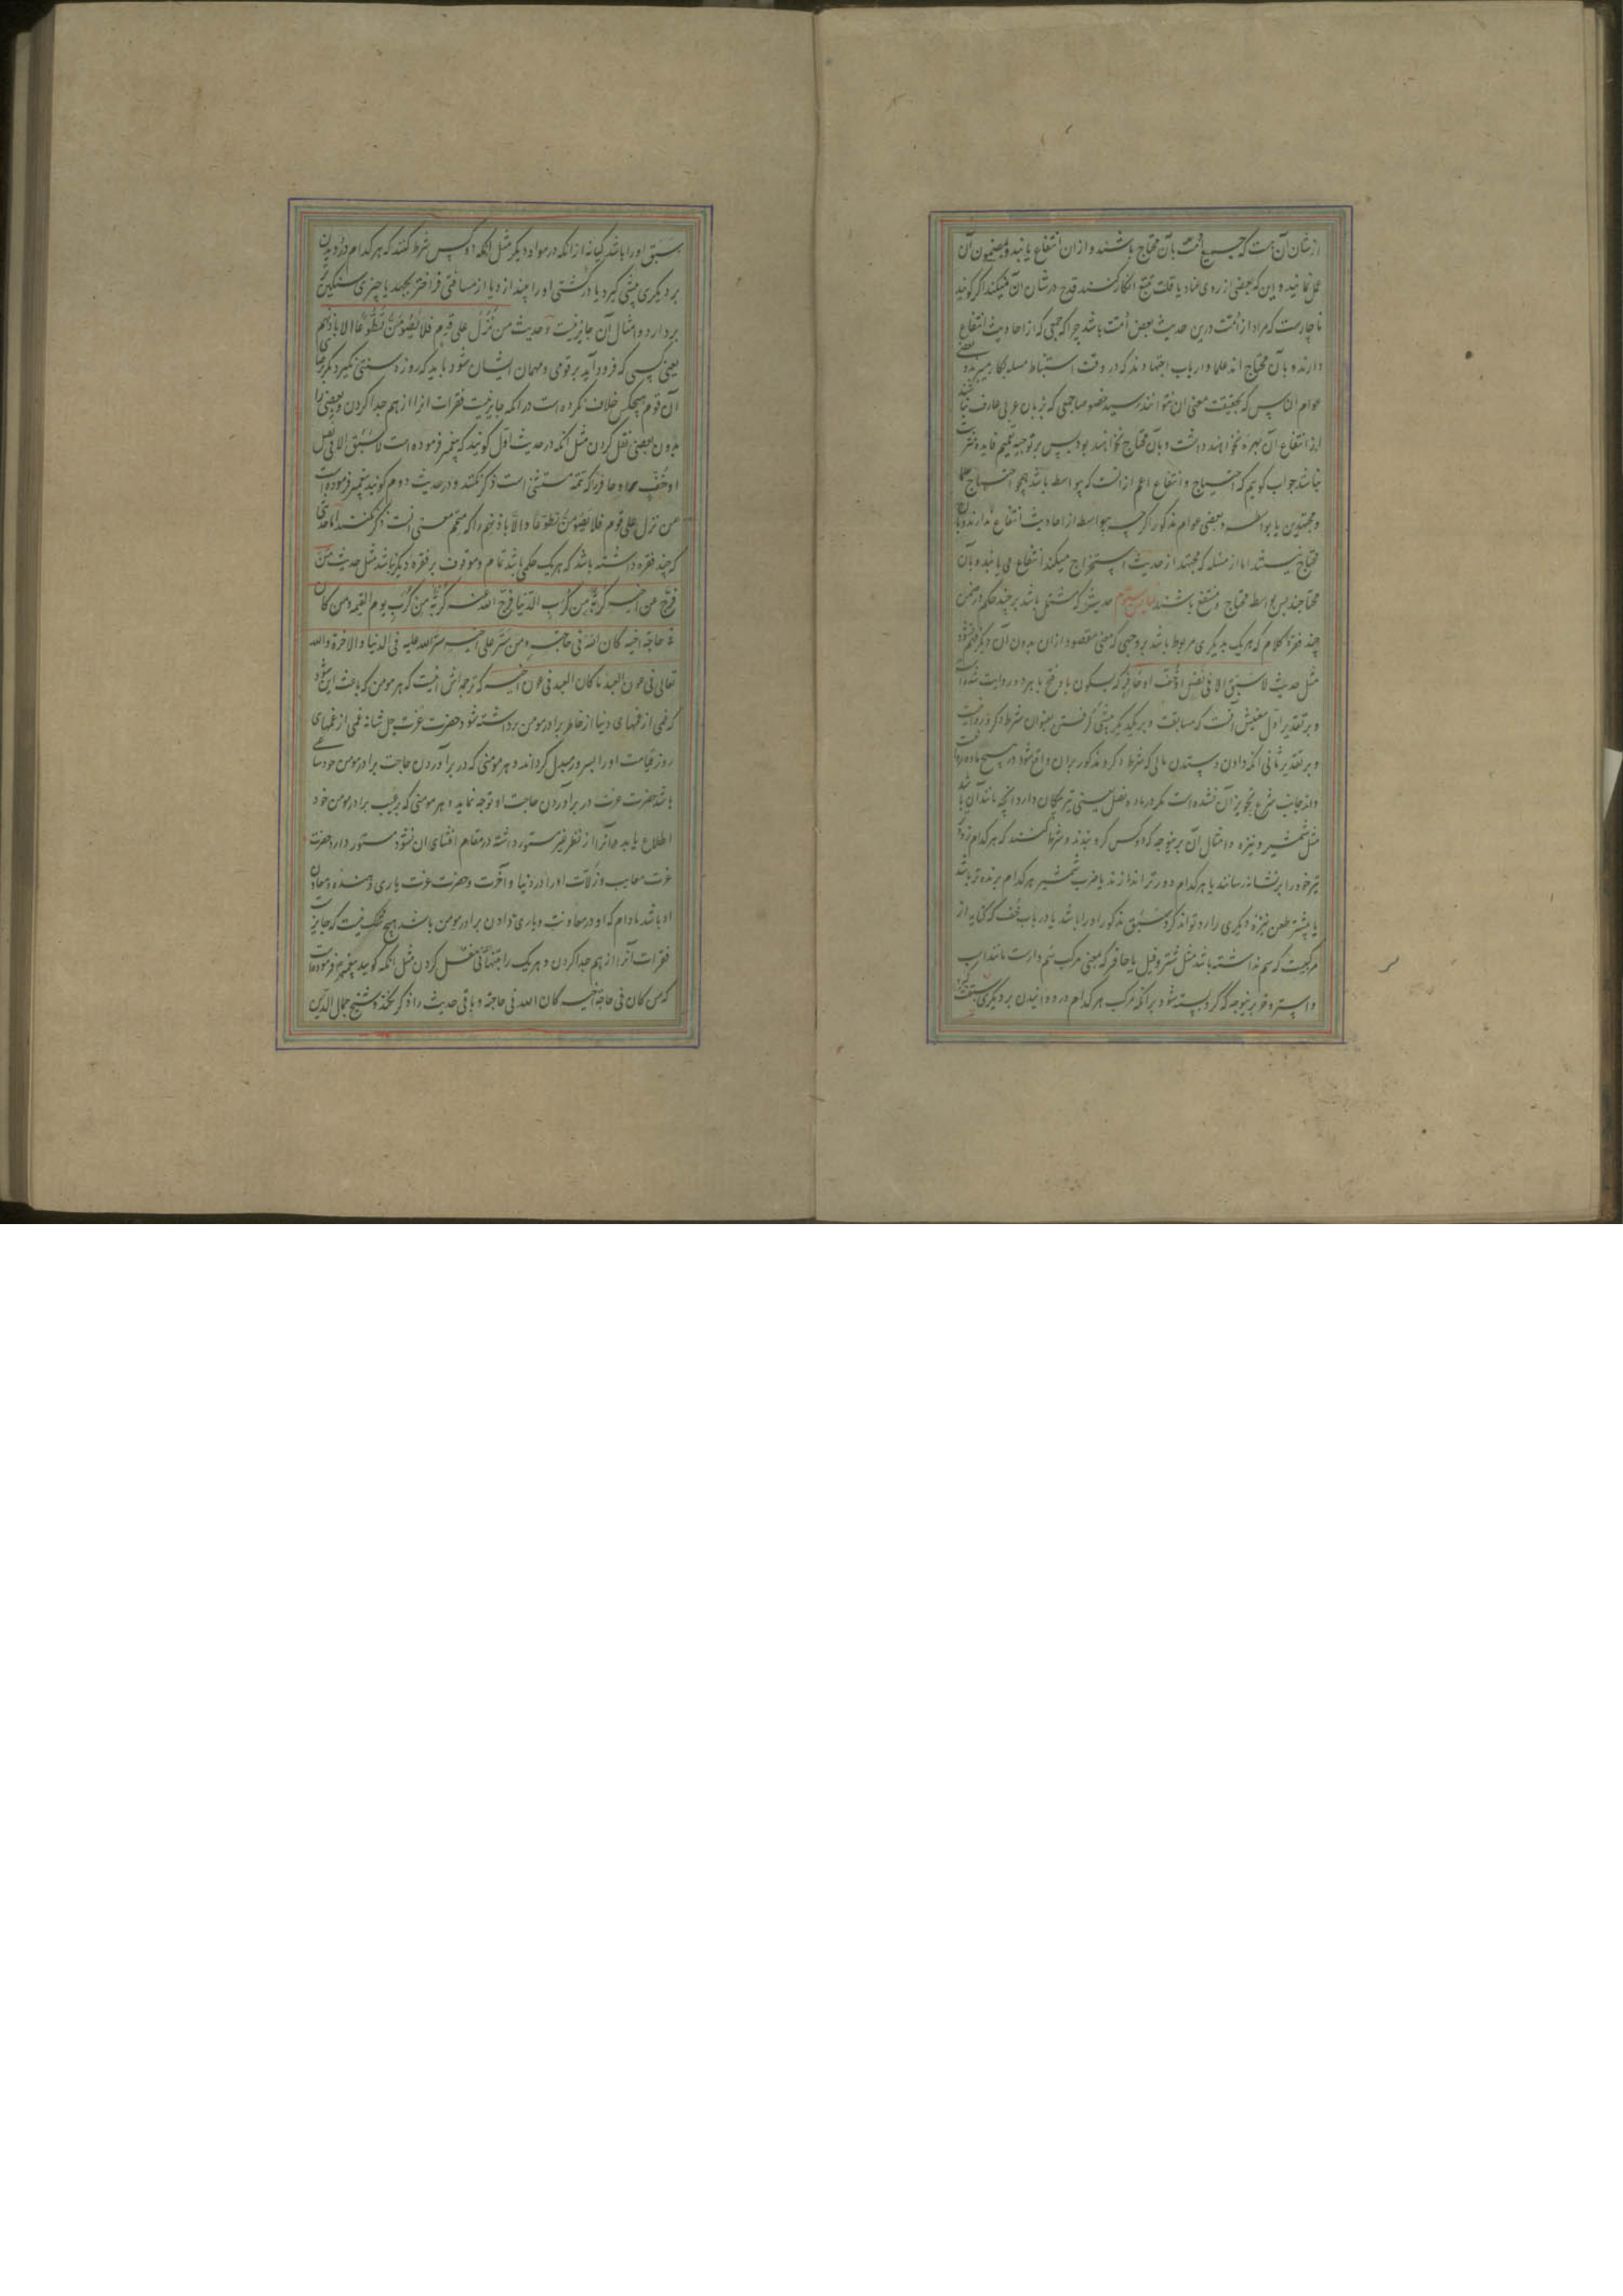 از شان آن هست که جمیع امت بآن محتاج باشند و ازان انتفاع یابند و بمضمون آن
عمل نمایند و این که بعضی از روی عناد یا قلت تتبع انکار کنند قدح در شان آن نمیکند اگر گویند
ناچارست که مراد از امت درین حدیث بعض امت باشد چرا که جمعی که از احادیث انتفاع
دارند و بآن محتاج اند علما و ارباب اجتهادند که در وقت استنباط مسله بکار میبرند و بعضی
عوام الناس که بحقیقت معنی ان نتوانند رسید خصوصا جمعی که بزبان عربی عارف نباشند
از انتفاع آن بهره نخواهند داشت و بآن محتاج نخواهند بود پس بر توجیه تعمیم فایده مترتب
نباشد جواب گویم که احتیاج و انتفاع اعم ازانست که بیواسطه باشد همچو احتیاج علما
و مجتهدین یا بواسطه و بعضی عوام مذکور اگر چه بیواسطه از احادیث انتفاع ندارند و بآن
محتاج نیستند اما از مسئله که مجتهد از حدیث استخراج میکند انتفاع می یابند و بآن
محتاجند پس بواسطه محتاج و منتفع باشند سیوم حدیثی که مشتمل باشد بر چند حکم در ضمن
چند فقره کلام که هر یک بدیگری مربوط باشد بر وجهی که معنی مقصود ازان بدون آن دیگر فهم نشود
مثل حدیث لا سبق الا فی نصل او خف او حافر که بسکون با و فتح با هر دو روایت شده است
و بر تقدیر اول معنیش انست که مسابقت و بر یکدیگر پیشی گرفتن بعنوان شرط و کرو روا نیست
و بر تقدیر ثانی انکه دادن و ستدن مالی که شرط و کرو مذکور بران واقع شود در هیچ ماده روا نیست
و از جانب شرع تجویز آن نشده است مگر در ماده نصل یعنی تیر پیکان دار و انچه مانند آن باشد
مثل شمشیر و نیزه و امثال آن برینوجه که دو کس کرو بندند و شرط کنند که هر کدام زودتر
تیر خود را بر نشانه رسانند یا هر کدام دورتر اندازند یا ضرب شمشیر هر کدام برنده تر باشد
یا پیشتر طعن نیزه دیگری را رد تواند کرد سبق مذکور او را باشد یا در باب خف که کنایه از
مرکبیست که سم نداشته باشد مثل شتر و فیل یا حافر که بمعنی مرکب سم دارست مانند اسب
و استر و خر برینوجه که کرو بسته شود بر انکه مرکب هر کدام در دوانیدن بر دیگری سبقت گیرد
سبق او را باشد کیانه از انکه در مواد دیگر مثل انکه دو کس شرط کنند که هر کدام در دویدن
بر دیگری پیشی گیرد یا در کشتی او را بیندازد یا از مسافتی فراختر بجهد یا چیزی سنگین تر
بردارد و امثال آن جایز نیست و حدیث من نزل علی قوم فلا یصومن تطوعا الا باذنهم
یعنی کسی که فرود آید بر قومی و مهمان ایشان شود باید که روزه سنتی نگیرد مگر برضای
آن قوم هیچکس خلاف نکرده است در انکه جایز نیست فقرات انرا از هم جدا کردن و بعضی را
بدون بعضی نقل کردن مثل انکه در حدیث اول گویند که پیغمبر فرموده است لا سبق الا فی نصل
او خف و او حافر را که تتمه مستثنی است ذکر نکنند و در حدیث دوم گویند پیغمبر فرموده است
من نزل علی قوم فلا یصومن تطوعا و الا باذنهم را که متمم معنی انست ذکر نکنند اما حدیثی
که چند فقره داشته باشد که هر یک حکمی باشد تمام و موقوف بر فقره دیگر نباشد مثل حدیث من
فرج من اخیه کربة من کرب الدنیا فرج الله عنه کربة من کرب یوم القیمه و من کان
فی حاجة اخیه کان الله فی حاجته و من ستر علی اخیه ستر الله علیه فی الدنیا و الاخرة و الله
تعالی فی عون العبد ما کان العبد فی عون اخیه که ترجمه اش انیست که هر مومن که باعث این شود
که غمی از غمهای دنیا از خاطر برادر مومن برداشته شود حضرت عزت جل شانه غمی از غمهای
روز قیامت او را بسرور مبدل گرداند و هر مومنی که در برآوردن حاجت برادر مومن خود ساعی
باشد حضرت عزت در برآوردن حاجت او توجه نماید و هر مومنی که بر عیب برادر مومن خود
اطلاع یابد و آنرا از نظر غیر مستور داشته در مقام افشای ان نشود مستور دارد حضرت
عزت معایب و زلات او را در دنیا و آخرت و حضرت عزت یاری دهنده و معاون
او باشد مادام که او در معاونت و یاری دادن برادر مومن باشد هیچ شک نیست که جایز است
فقرات آنرا از هم جدا کردن و هر یک را بتنهائی نقل کردن مثل انکه گویند پیغمبر فرموده است
که من کان فی حاجة اخیه کان الله فی حاجته و باقی حدیث را ذکر نکند و شیخ جمال الدین